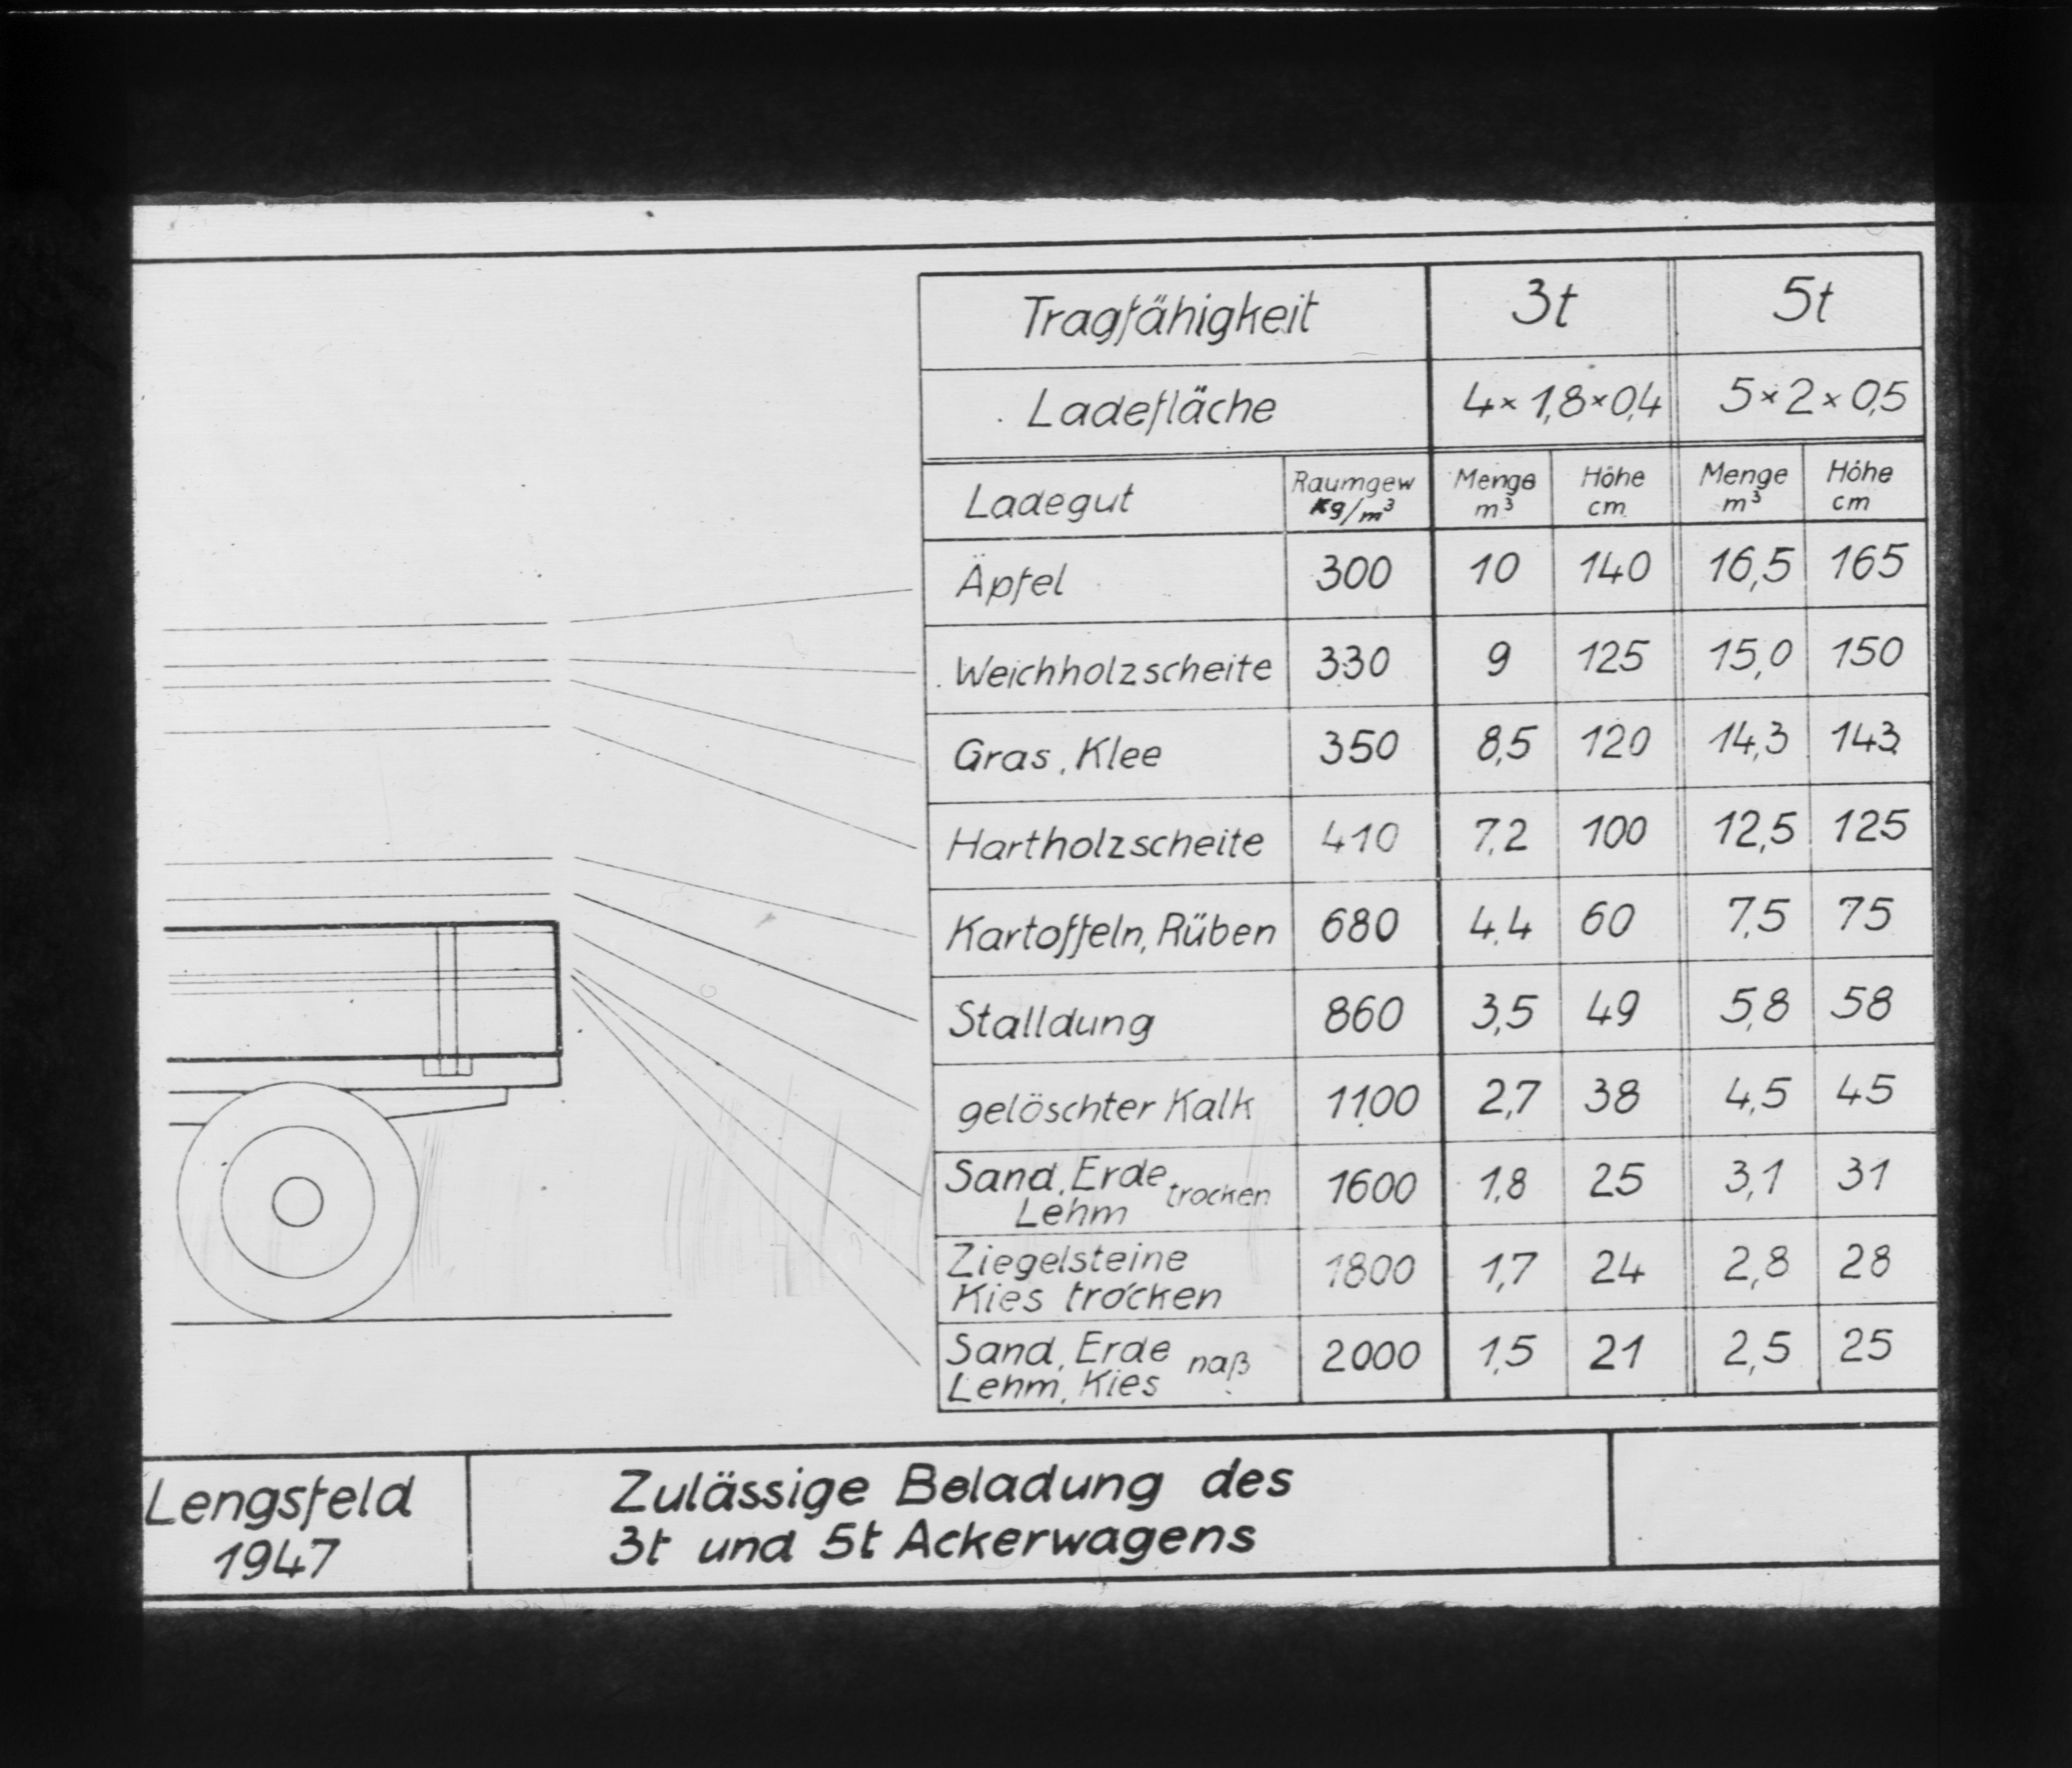 Tragfähigkeit 3t 5t
Ladefläche 4×1,8×0,4 5×2×0,5
Ladegut Raumgew Kg/m³ Menge m³ Höhe cm Menge m³ Höhe cm
Äpfel 300 10 140 16,5 165
Weichholzscheite 330 9 125 15,0 150
Gras, Klee 350 8,5 120 14,3 143
Hartholzscheite 410 7,2 100 12,5 125
Kartoffeln, Rüben 680 4,4 60 7,5 75
Stalldung 860 3,5 49 5,8 58
gelöschter Kalk 1100 2,7 38 4,5 45
Sand, Erde trocken 1600 1,8 25 3,1 31
Lehm
Ziegelsteine 1800 1,7 24 2,8 28
Kies trocken
Sand, Erde naß 2000 1,5 21 2,5 25
Lehm, Kies
Lengsfeld
1947
Zulässige Beladung des
3t und 5t Ackerwagens